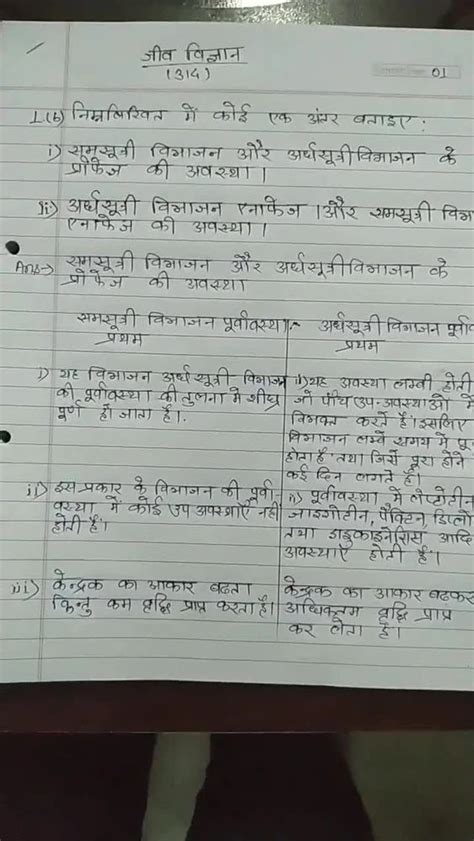 जीव विज्ञान
(314)
01
1.(b) निम्नलिखित में कोई एक अंतर बताइए :
i) समसूत्री विभाजन और अर्धसूत्री विभाजन के
प्रोफेज की अवस्था।
ii) अर्धसूत्री विभाजन एनाफेज ।और समसूत्री विभा
एनाफेज की अवस्था।
Ans→ समसूत्री विभाजन और अर्धसूत्री विभाजन के
प्रोफेज की अवस्था
समसूत्री विभाजन पूर्वावस्था:-
प्रथम
अर्धसूत्री विभाजन पूर्वाव
प्रथम
i) यह विभाजन अर्धसूत्री विभाजन
की पूर्वावस्था की तुलना मे शीघ्र
पूर्ण हो जाता है।.
i) यह अवस्था लम्बी होती
जो पाँच उप-अवस्थाओं में
विभक्त करते है। इसलिए
विभाजन लम्बे समय में पू
होता है तथा जिसे पूरा होने
कई दिन लगते है।
ii) इस प्रकार के विभाजन की पूर्वा-
वस्था में कोई उप अवस्थाएँ नही
होती है।
ii) पूर्वावस्था में लेप्टोटीन
जाइगोटीन, पैक्टिन, डिप्लो
तथा डाइकाइनेसिस आदि
अवस्थाएँ होती है।
iii) केन्द्रक का आकार बढता
किन्तु कम वृद्धि प्राप्त करता है।
केन्द्रक का आकार बढकर
अधिकतम वृद्धि प्राप्त
कर लेता है।